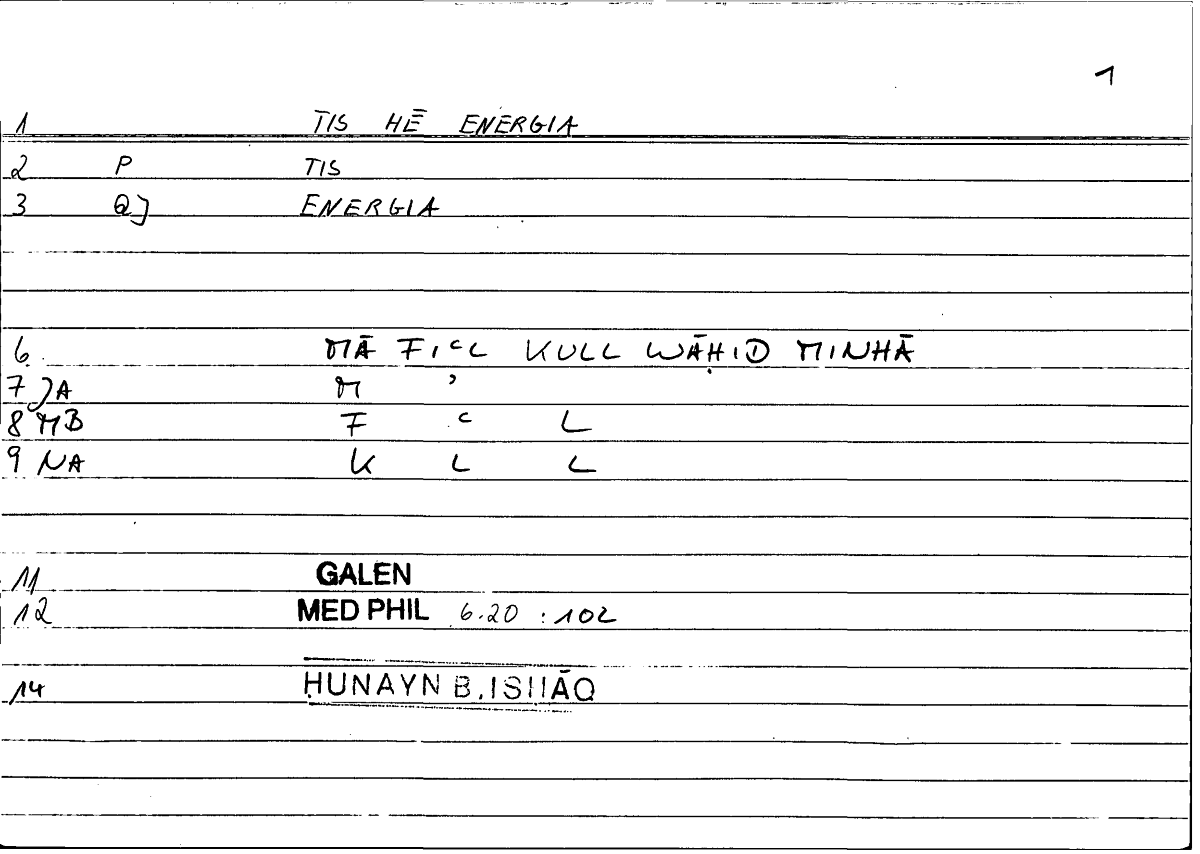 1
1 TIS HĒ ENERGIA
2 P TIS
3 QJ ENERGIA
6 MĀ FIʿL KULL WĀḤID MINHĀ
7 JA M ʾ
8 MB F ʿ L
9 NA K L L
11 GALEN
12 MED PHIL 6.20 : 102
14 ḤUNAYN B.ISḤĀQ